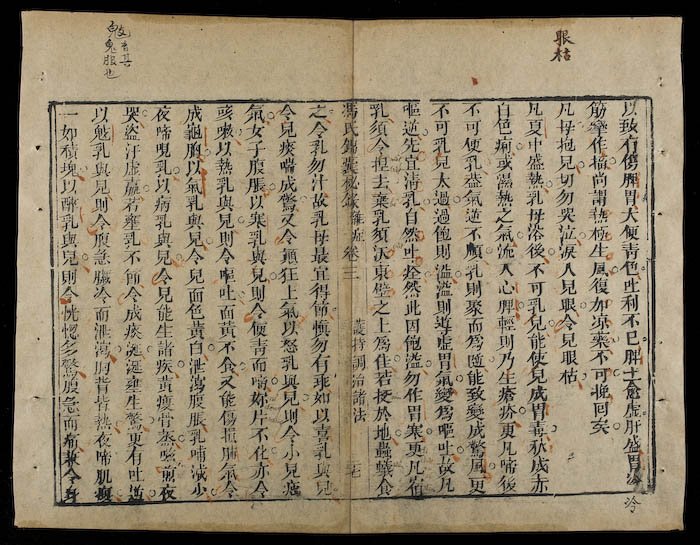 眼枯
以致有傷脾胃大便青色吐利不已脾土愈虛肝盛胃冷
冷
筋攣作搐尚謂熱極生風復加涼藥不可挽回矣
凡母抱兒切勿哭泣淚入兒眼令兒眼枯
凡夏中盛熱乳母浴後不可乳兒能使兒成胃毒秋成赤
白色痢或濕熱之氣流入心脾輕則乃生瘡疥更凡啼後
不可便乳蓋氣逆不順乳則聚而為隨能致變成驚風更
不可乳兒太過過飽則溢溢則逆虛胃氣變為嘔吐故凡
嘔逆先宜淸乳自然吐痊然此因飽溢勿作胃寒更凡宿
乳須令捏去棄乳須沃東壁之上為佳若投於地蟲蟻食
馮氏錦囊秘錄雜症 卷三 護持調治諸法 七
之令乳勿汁故乳母最宜得節慎勿有乖如以喜乳與兒
令兒痰喘成驚又令顛狂上氣以怒乳與兒則令小兒疝
氣女子腹脹以寒乳與兒則令便青而啼妳片不化亦令
咳嗽以熱乳與兒則令嘔吐面黃不食又能傷損肺氣令
成龜胸以氣乳與兒令兒面色黃白泄瀉腹脹乳哺減少
夜啼哯乳以病乳與兒令兒能生諸疾黃瘦骨蒸夜
哭盜汗虛羸若壅乳不節令成痰涎涎壅生驚更有吐逆
以魃乳與兒則令腹急臟冷而泄瀉胸背皆熱夜啼肌瘦
一如積塊以醉乳與兒則令恍惚多驚腹急而痛令身
魃音其